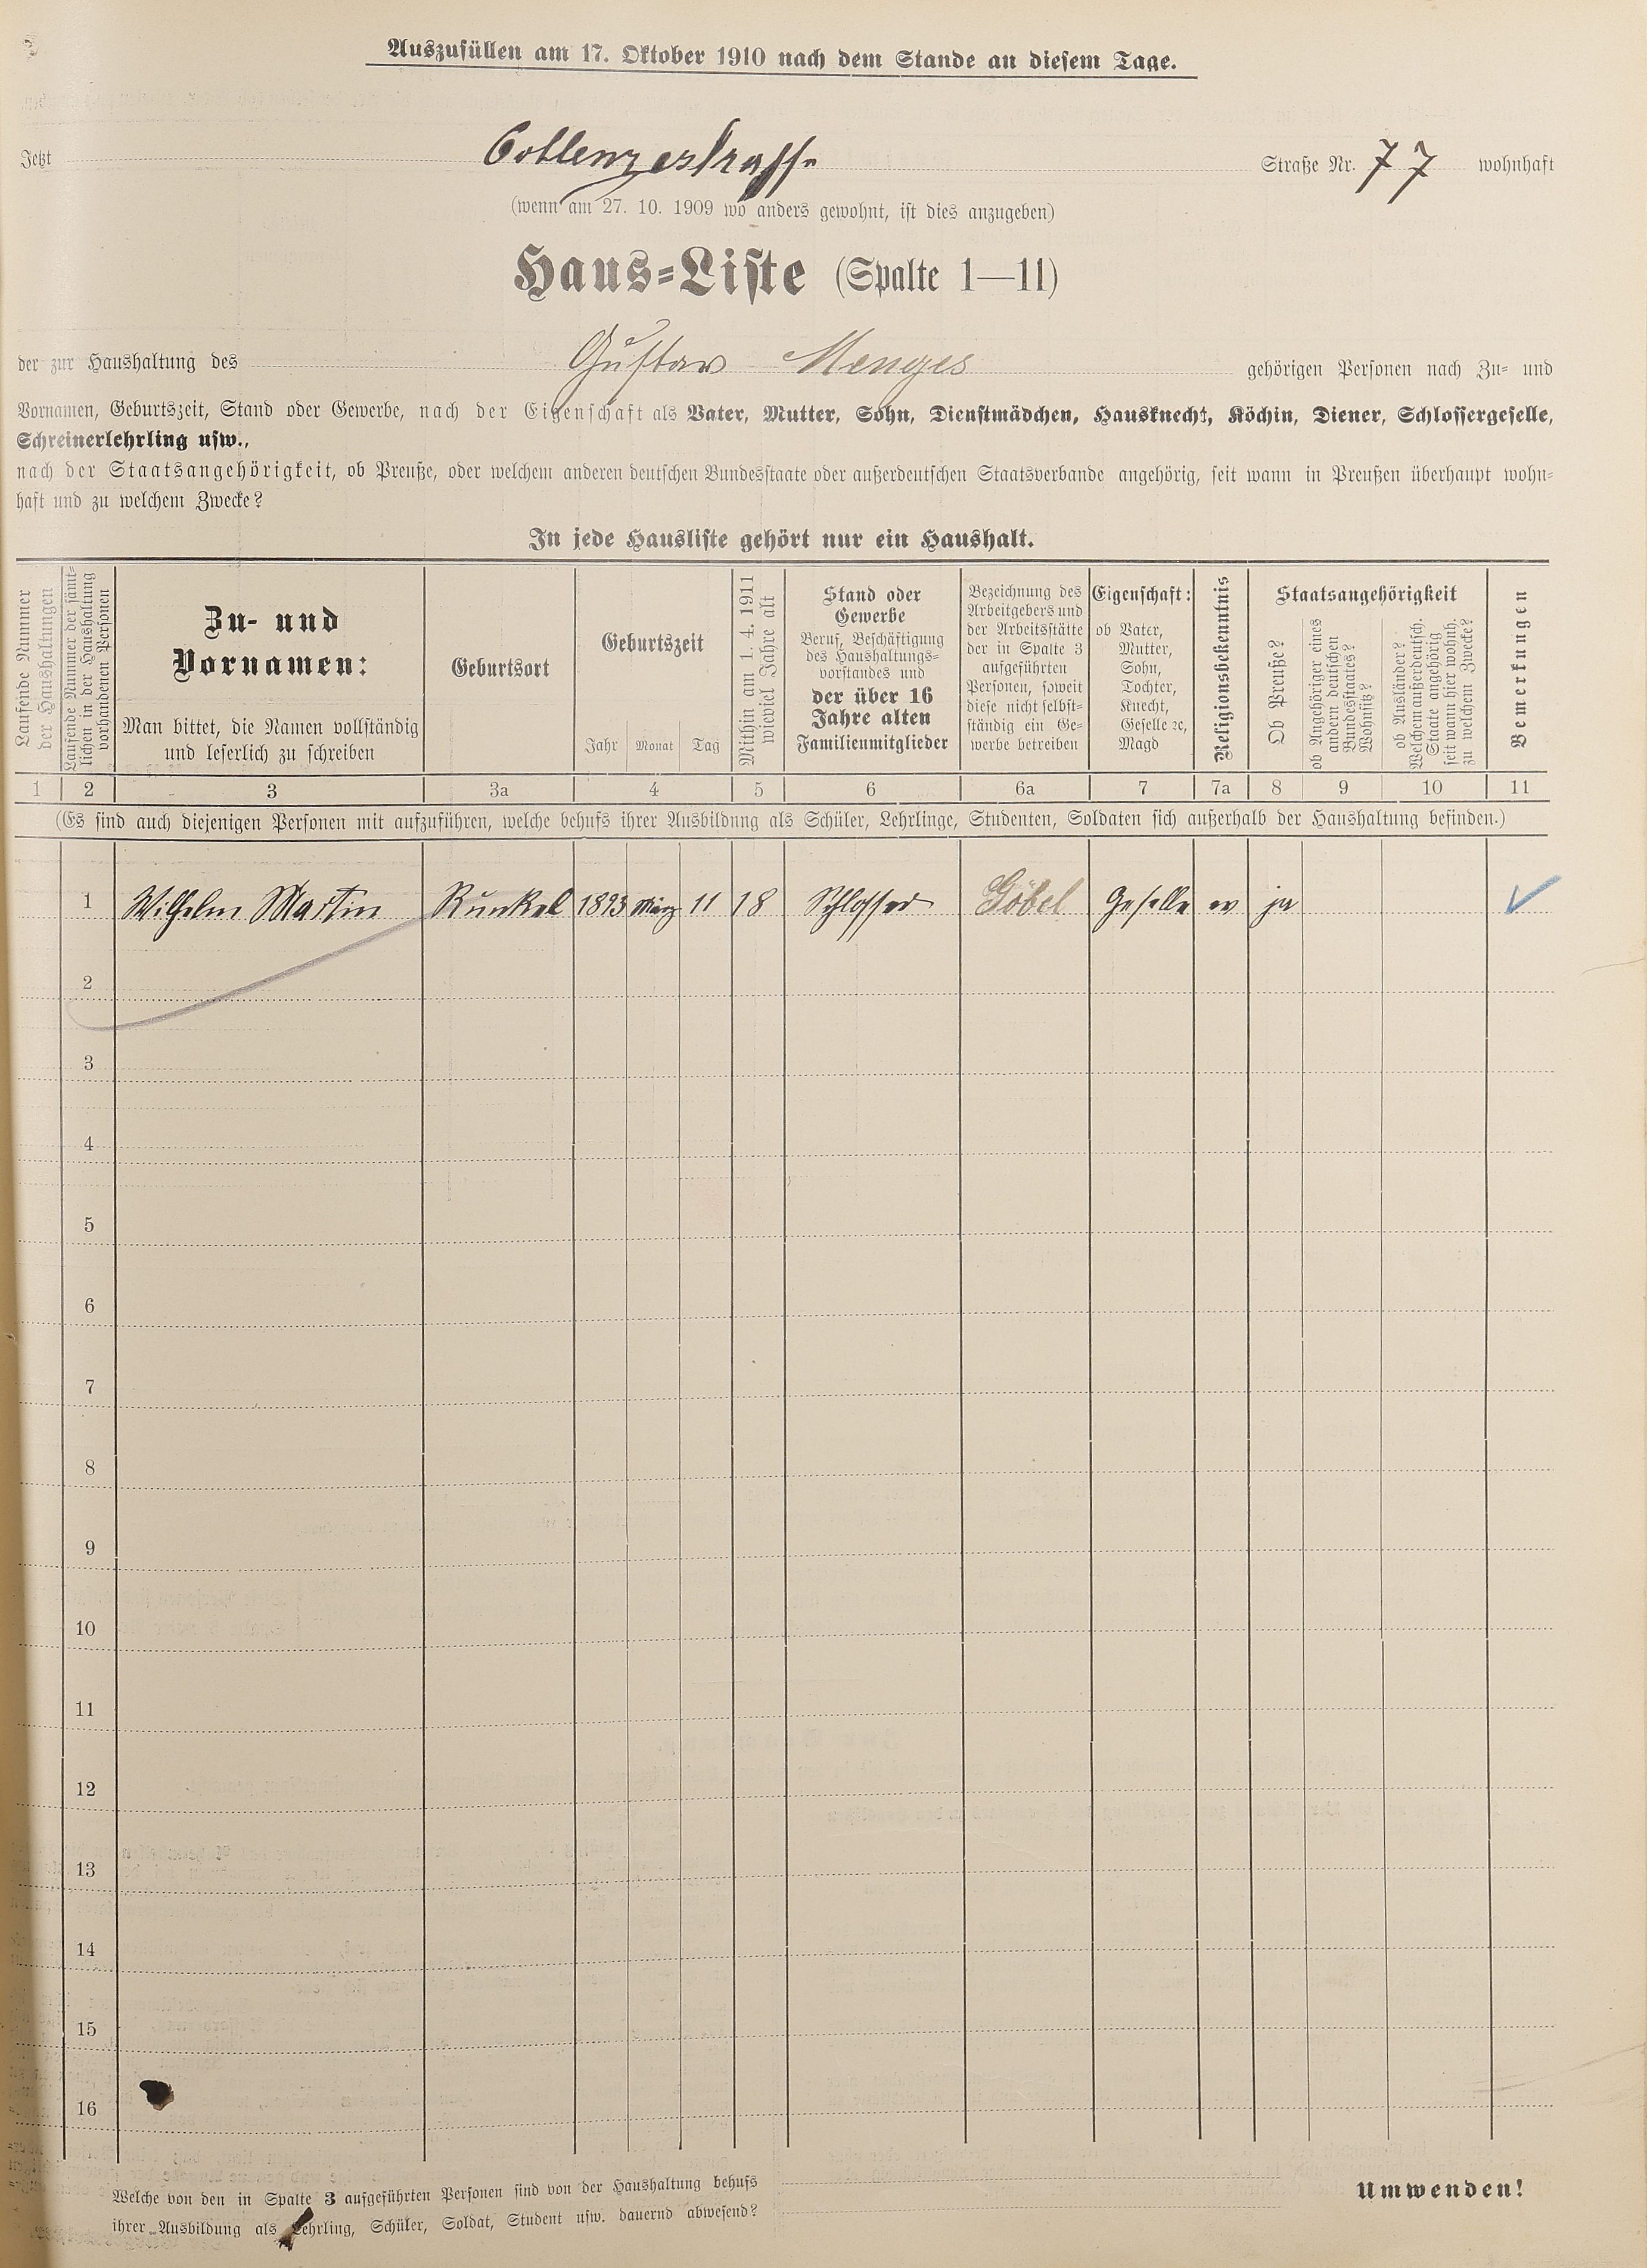 Auszufüllen am 17. Oktober 1910 nach dem Stande an diesem Tage.
Jetzt Coblenzerstrasse Straße Nr. 77 wohnhaft
(wenn am 27. 10. 1909 wo anders gewohnt, ist dies anzugeben)
Haus-Liste (Spalte 1—11)
der zur Haushaltung des Gustav Menges gehörigen Personen nach Zu- und
Vornamen, Geburtszeit, Stand oder Gewerbe, nach der Eigenschaft als Vater, Mutter, Sohn, Dienstmädchen, Hausknecht, Köchin, Diener, Schlossergeselle,
Schreinerlehrling usw.,
nach der Staatsangehörigkeit, ob Preuße, oder welchem anderen deutschen Bundesstaate oder außerdeutschen Staatsverbande angehörig, seit wann in Preußen überhaupt wohn-
haft und zu welchem Zwecke?
In jede Hausliste gehört nur ein Haushalt.
Laufende Nummer
der Haushaltungen
Laufende Nummer der sämt-
lichen in der Haushaltung
vorhandenen Personen
Zu- und
Vornamen:
Man bittet, die Namen vollständig
und leserlich zu schreiben
Geburtsort
Geburtszeit
Jahr Monat Tag
Mithin am 1. 4. 1911
wieviel Jahre alt
Stand oder
Gewerbe
Beruf, Beschäftigung
des Haushaltungs-
vorstandes und
der über 16
Jahre alten
Familienmitglieder
Bezeichnung des
Arbeitgebers und
der Arbeitsstätte
der in Spalte 3
aufgeführten
Personen, soweit
diese nicht selbst-
ständig ein Ge-
werbe betreiben
Eigenschaft:
ob Vater,
Mutter,
Sohn,
Tochter,
Knecht,
Geselle ꝛc,
Magd
Religionsbekenntnis
Staatsangehörigkeit
Ob Preuße?
ob Angehöriger eines
andern deutschen
Bundesstaates?
Wohnsitz?
ob Ausländer?
Welchem außerdeutsch.
Staate angehörig
seit wann hier wohnh.
zu welchem Zwecke?
Bemerkungen
1 2 3 3a 4 5 6 6a 7 7a 8 9 10 11
(Es sind auch diejenigen Personen mit aufzuführen, welche behufs ihrer Ausbildung als Schüler, Lehrlinge, Studenten, Soldaten sich außerhalb der Haushaltung befinden.)
1 Wilhelm Martin Runkel 1893 März 11 18 Schlosser Göbel Geselle ev ja
2
3
4
5
6
7
8
9
10
11
12
13
14
15
16
Welche von den in Spalte 3 aufgeführten Personen sind von der Haushaltung behufs
ihrer Ausbildung als Lehrling, Schüler, Soldat, Student usw. dauernd abwesend?
Umwenden!